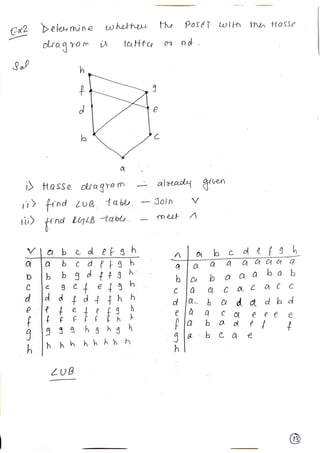 Ex2 Determine whether the Poset with this Hasse
diagram is lattice or not.
Sol
h
f g
d e
b c
a
i) Hasse diagram — already given
ii) find LUB table. — Join ∨
iii) find GLB table. — meet ∧
∨ a b c d e f g h
a a b c d e f g h
b b b g d f f g h
c c g c f e f g h
d d d f d f f h h
e e f e f e f g h
f f f f f f f h h
g g g g h g h g h
h h h h h h h h
∧ a b c d e f g h
a a a a a a a a a
b a b a a a b a b
c a a c a c a c c
d a b a d a d b d
e a a c a e e e e
f a b a d e f f
g a b c a e
h
LUB
13